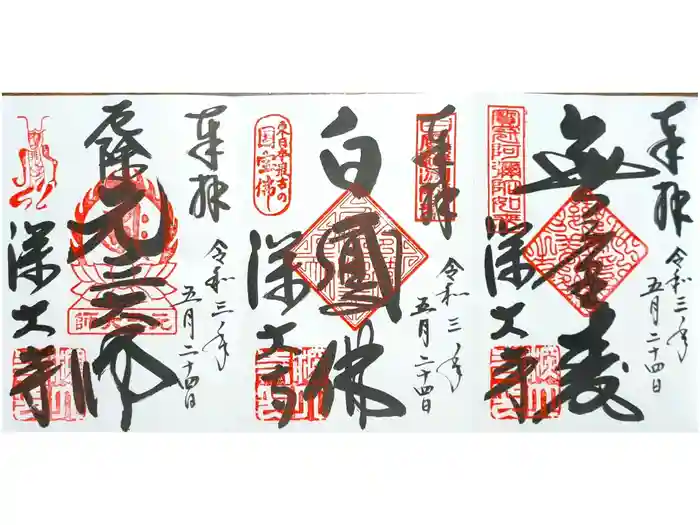 奉拝
令和三年
五月二十四日
無量壽
寳冠阿彌陀如来
深大寺
奉拝
令和三年
五月二十四日
白鳳佛
東日本最古の
国宝佛
深大寺
奉拝
令和三年
五月二十四日
厄除
元三大師
深大寺